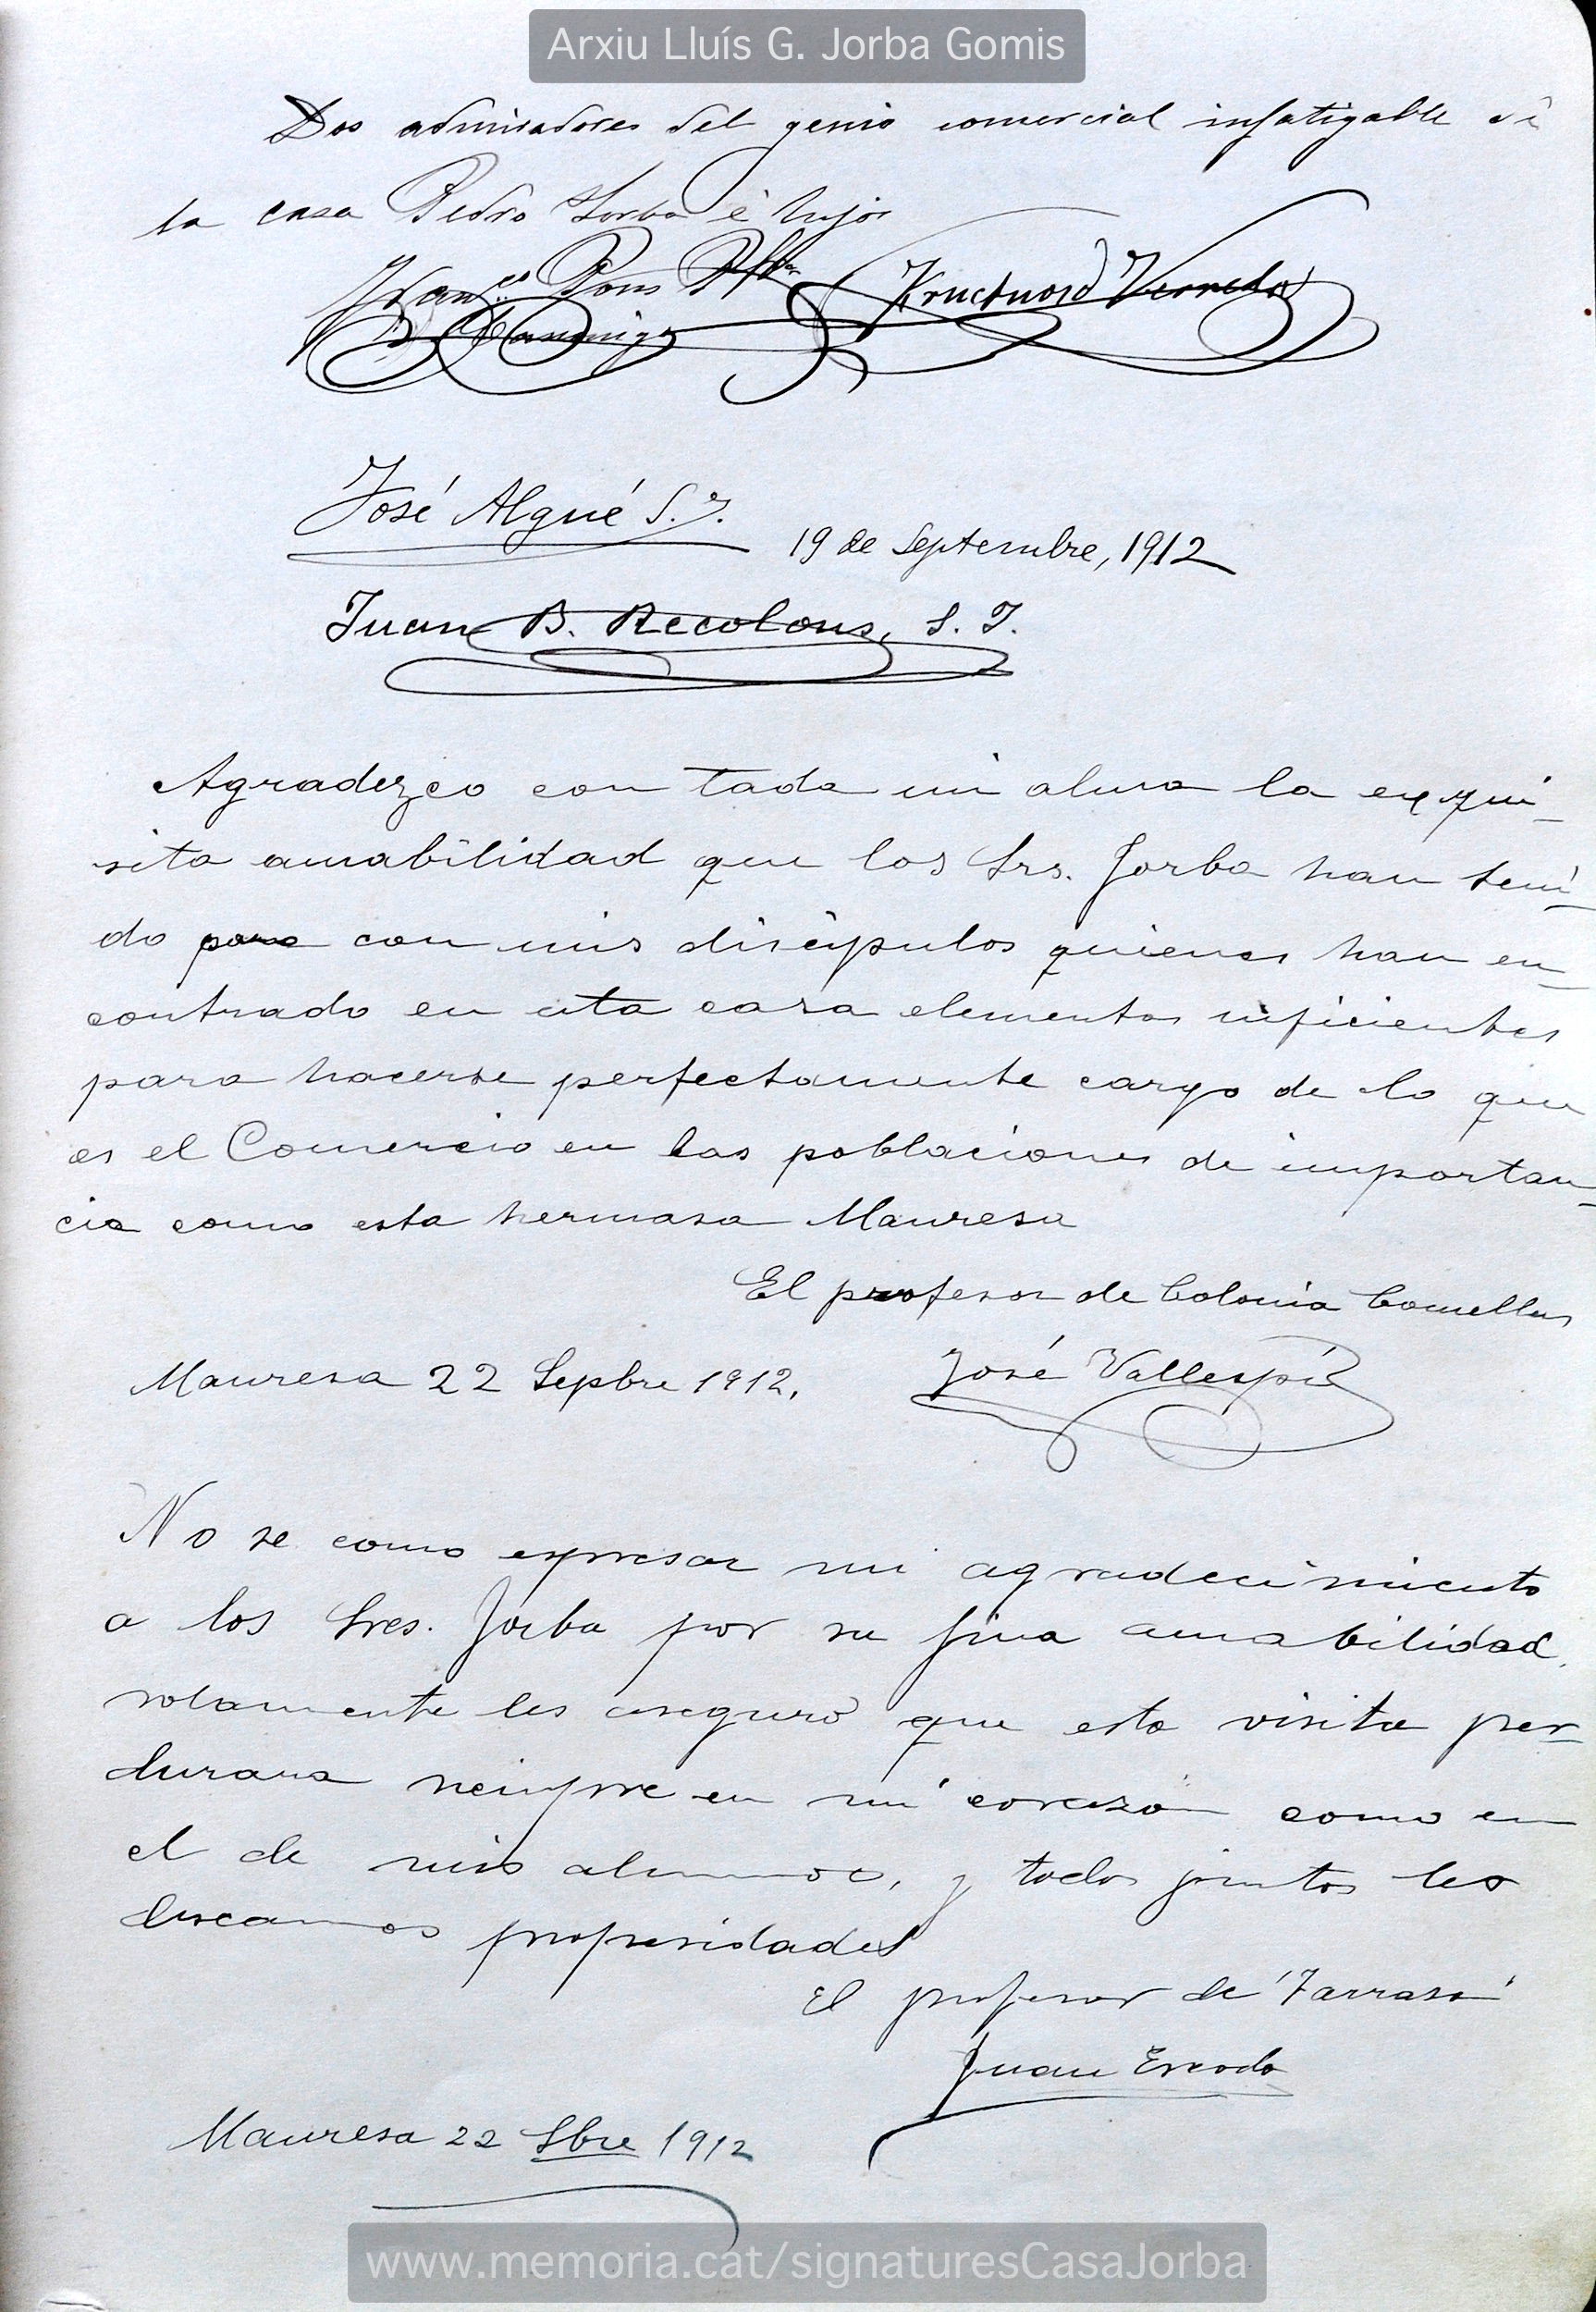 Arxiu Lluís G. Jorba Gomis
Dos admiradores del genio comercial infatigable de
la casa Pedro Jorba é hijos
Fran.co Pons Fructuoso
José Algué S.J.
19 de Septembre, 1912
Juan B. Recolons, S.J.
Agradezco con toda mi alma la exqui-
sita amabilidad que los Srs. Jorba han teni-
do para con mis discípulos quienes han en-
contrado en esta casa elementos suficientes
para hacerse perfectamente cargo de lo que
es el Comercio en las poblaciones de importan-
cia como esta hermosa Manresa
El profesor de Colonia Comellas
Manresa 22 Sepbre 1912.
José Vallespí
No se como expresar mi agradecimiento
a los Sres. Jorba por su fina amabilidad,
solamente les aseguro que esta visita per-
durara siempre en mi corazón como en
el de mis alumnos, y todos juntos les
deseamos prosperidades
El profesor de Tarrasa
Juan Escoda
Manresa 22 Sbre 1912
www.memoria.cat/signaturesCasaJorba